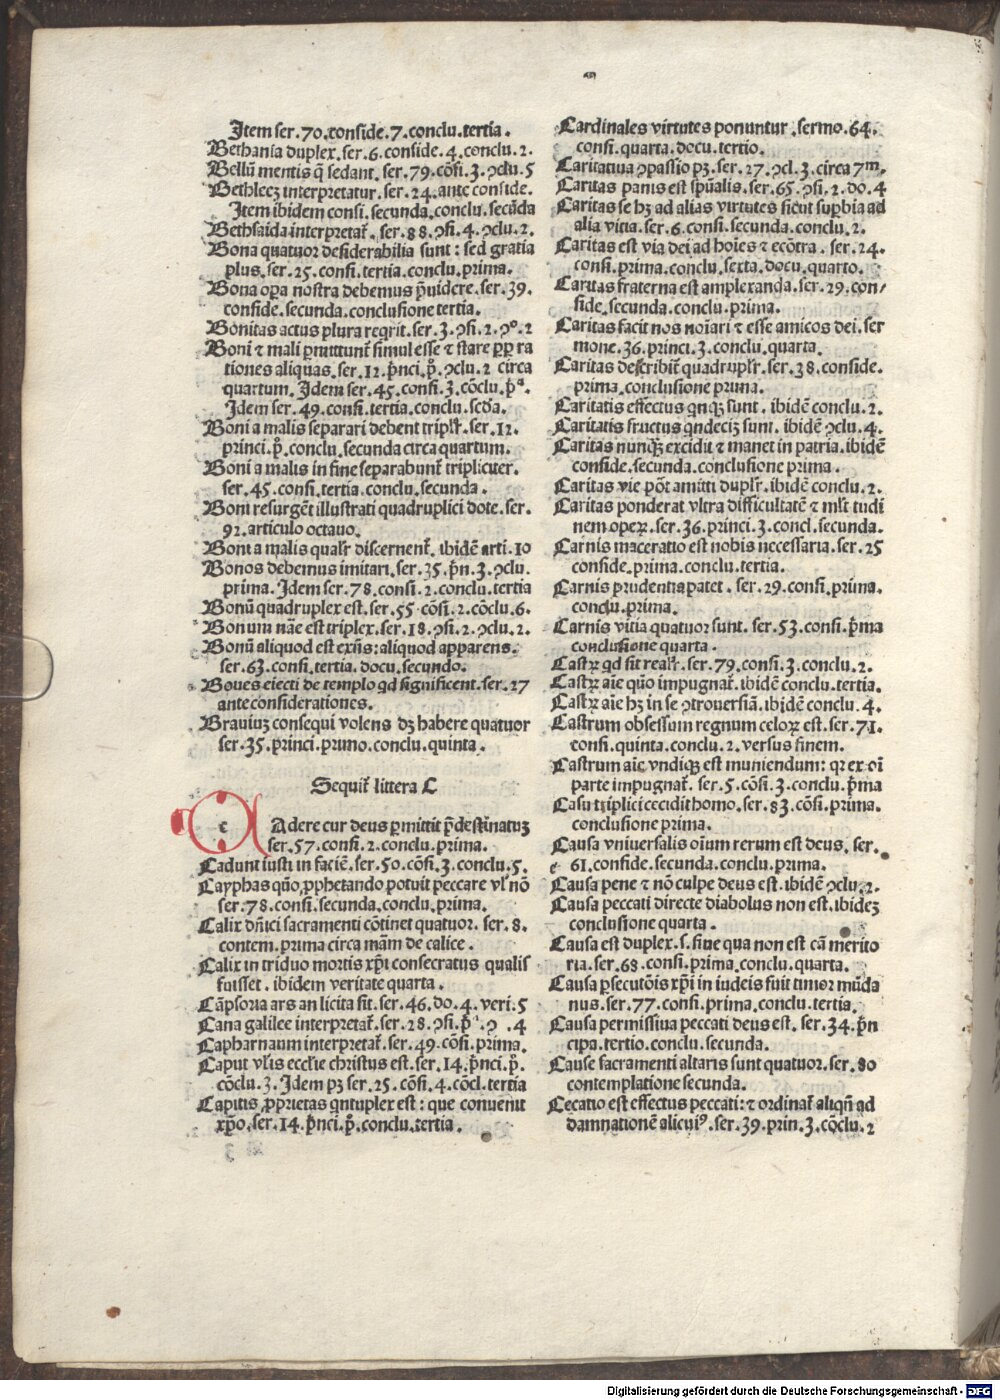 Item ser.70.conside.7.conclu.tertia.
Bethania duplex.ser.6.conside.4.conclu.2.
Bellū mentis q̄ sedant.ser.79.cōsi.3.ↄclu.5
Bethleeꝫ interpretatur.ser.24.ante conside.
Item ibidem consi.secunda.conclu.secūda
Bethsaida interpretat᷑.ser.88.ↄsi.4.ↄclu.2.
Bona quatuor desiderabilia sunt: sed gratia
plus.ser.25.consi.tertia.conclu.prima.
Bona oꝑa nostra debemus p̄uidere.ser.39.
conside.secunda.conclusione tertia.
Bonitas actus plura reqrit.ser.3.ↄsi.2.ↄº.2
Boni ⁊ mali ꝑmittunt᷑ simul esse ⁊ stare ꝓpꝑ ra
tiones aliquas.ser.12.p̄nci.p̊.ↄclu.2 circa
quartum. Idem ser.45.consi.3.cōclu.p̄ª.
Idem ser.49.consi.tertia.conclu.scd̄a.
Boni a malis separari debent triplr̄.ser.12.
princi.p̊.conclu.secunda circa quartum.
Boni a malis in fine separabunt᷑ tripliciter.
ser.45.consi.tertia.conclu.secunda.
Boni resurgēt illustrati quadruplici dote.ser.
92.articulo octauo.
Boni a malis qualr̄ discernent᷑.ibidē arti.10
Bonos debemus imitari.ser.35.p̄n.3.ↄclu.
prima. Idem ser.78.consi.2.conclu.tertia
Bonū quadruplex est.ser.55 cōsi.2.cōclu.6.
Bonum nāe est triplex.ser.18.ↄsi.2.ↄclu.2.
Bonū aliquod est exn̄s: aliquod apparens.
ser.63.consi.tertia.docu.secundo.
Boues eiecti de templo qd significent.ser.27
ante considerationes.
Brauiuꝫ consequi volens dꝫ habere quatuor
ser.35.princi.primo.conclu.quinta.
Sequit᷑ littera C
c Adere cur deus ꝑmittit p̄destinatuꝫ
ser.57.consi.2.conclu.prima.
Cadunt iusti in faciē.ser.50.cōsi.3.conclu.5.
Cayphas qūo ꝓphetando potuit peccare vl̄ nō
ser.78.consi.secunda.conclu.prima.
Calix dn̄ici sacramenti cōtinet quatuor. ser.8.
contem.prima circa mām de calice.
Calix in triduo mortis xp̄i consecratus qualis
fuisset.ibidem veritate quarta.
Cāpsoria ars an licita sit.ser.46.do.4.veri.5
Cana galilee interpretat᷑.ser.28.ↄsi.p̄ª.ↄ .4
Capharnaum interpretat᷑.ser.49.cōsi.prima.
Caput vl̄is eccl̄ie christus est.ser.14.p̄nci.p̊.
cōclu.3. Idem pꝫ ser.25.cōsi.4.cōcl.tertia
Capitis ꝓprietas qntuplex est: que conuenit
xp̄o.ser.14.p̄nci.p̊.conclu.tertia.
Cardinales virtutes ponuntur.sermo.64.
consi.quarta.docu.tertio.
Caritatiua ↄpassio pꝫ.ser.27.ↄcl.3.circa 7ᵐ.
Caritas panis est sp̄ualis.ser.65.ↄsi.2.do.4
Caritas se hꝫ ad alias virtutes sicut suꝑbia ad
alia vitia.ser.6.consi.secunda.conclu.2.
Caritas est via dei ad hoīes ⁊ ecōtra. ser.24.
consi.prima.conclu.sexta.docu.quarto.
Caritas fraterna est amplexanda.ser.29.con/
side.secunda.conclu.prima.
Caritas facit nos noīari ⁊ esse amicos dei.ser
mone.36.princi.3.conclu.quarta.
Caritas describit᷑ quadruplr̄.ser.38.conside.
prima.conclusione prima.
Caritatis effectus qnqꝫ sunt. ibidē conclu.2.
Caritatis fructus qndeciꝫ sunt.ibidē ↄclu.4.
Caritas nunqꝫ excidit ⁊ manet in patria.ibidē
conside.secunda.conclusione prima.
Caritas vie pōt amitti duplr̄.ibidē conclu.2.
Caritas ponderat vltra difficultatē ⁊ ml̄titudi
nem opeꝝ.ser.36.princi.3.concl.secunda.
Carnis maceratio est nobis necessaria.ser.25
conside.prima.conclu.tertia.
Carnis prudentia patet. ser.29.consi.prima.
conclu.prima.
Carnis vitia quatuor sunt. ser.53.consi.p̄ma
conclusione quarta.
Castꝝ qd sit realr̄.ser.79.consi.3.conclu.2.
Castꝝ aīe qūo impugnat᷑.ibidē conclu.tertia.
Castꝝ aīe hꝫ in se ↄtrouersiā.ibidē conclu.4.
Castrum obsessum regnum celoꝝ est.ser.71.
consi.quinta.conclu.2.versus finem.
Castrum aīe vndiqꝫ est muniendum: qr ex oī
parte impugnat᷑. ser.5.cōsi.3.conclu.p̄ma
Casu triplici cecidit homo.ser.83.cōsi.prima.
conclusione prima.
Causa vniuersalis oīum rerum est deus. ser.
61.conside.secunda.conclu.prima.
Causa pene ⁊ nō culpe deus est.ibidē ↄclu.2.
Causa peccati directe diabolus non est.ibideꝫ
conclusione quarta.
Causa est duplex.s.sine qua non est cā merito
ria.ser.68.consi.prima.conclu.quarta.
Causa ꝑsecutōis xp̄i in iudeis fuit timor mūda
nus.ser.77.consi.prima.conclu.tertia.
Causa permissiua peccati deus est. ser.34.p̄n
cipa.tertio.conclu.secunda.
Cause sacramenti altaris sunt quatuor.ser.80
contemplatione secunda.
Cecatio est effectus peccati: ⁊ ordinat᷑ aliqn̄ ad
damnationē alicuiꝰ.ser.39.prin.3.cōclu.2
Digitalisierung gefördert durch die Deutsche Forschungsgemeinschaft - DFG